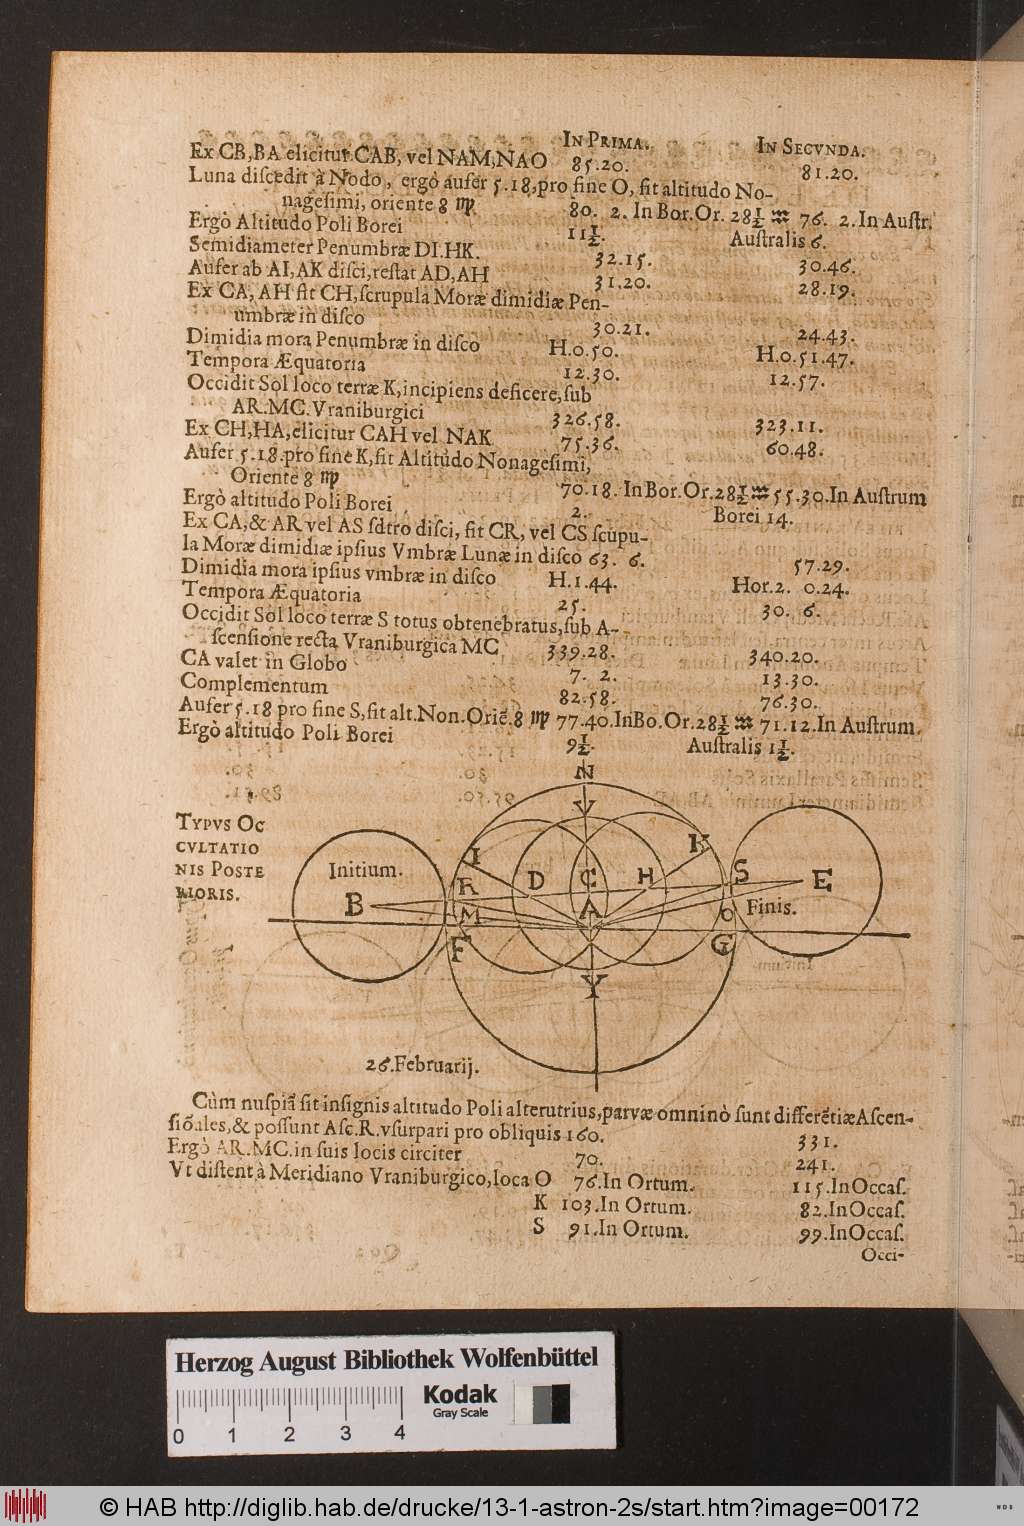 IN PRIMA. IN SECVNDA.
Ex CB,BA elicitur CAB, vel NAM,NAO 85.20. 81.20.
Luna discedit à Nodo, ergò aufer 5.18,pro fine O, fit altitudo No-
nagesimi, oriente 8 ♍ 80. 2. In Bor.Or. 28½ ♒ 76. 2.In Austr.
Ergò Altitudo Poli Borei 11½. Australis 6.
Semidiameter Penumbræ DI.HK. 32.15. 30.46.
Aufer ab AI,AK disci,restat AD,AH 31.20. 28.19.
Ex CA, AH fit CH,scrupula Moræ dimidiæ Pen-
umbræ in disco 30.21. 24.43.
Dimidia mora Penumbræ in disco H.0.50. H.0.51.47.
Tempora Æquatoria 12.30. 12.57.
Occidit Sol loco terræ K,incipiens deficere,sub
AR.MC.Vraniburgici 326.58. 323.11.
Ex CH,HA,elicitur CAH vel NAK 75.36. 60.48.
Aufer 5.18.pro fine K,fit Altitudo Nonagesimi,
Oriente 8 ♍ 70.18. In Bor.Or.28½ ♒ 55.30.In Austrum
Ergò altitudo Poli Borei 2. Borei 14.
Ex CA,& AR vel AS sdtro disci, fit CR, vel CS scupu-
la Moræ dimidiæ ipsius Vmbræ Lunæ in disco 63. 6. 57.29.
Dimidia mora ipsius vmbræ in disco H.1.44. Hor.2. 0.24.
Tempora Æquatoria 25. 30. 6.
Occidit Sol loco terræ S totus obtenebratus,sub A-
scensione recta Vraniburgica MC 339.28. 340.20.
CA valet in Globo 7. 2. 13.30.
Complementum 82.58. 76.30.
Aufer 5.18 pro fine S,fit alt.Non.Oriē.8 ♍ 77.40.InBo.Or.28½ ♒ 71.12.In Austrum.
Ergò altitudo Poli Borei 9½. Australis 1½.
TYPVS OC
CVLTATIO
NIS POSTE
RIORIS.
N
V
I K
Initium. R D C H S E
B M A O Finis.
F G
Y
26.Februarij.
Cùm nuspiā sit insignis altitudo Poli alterutrius,parvæ omninò sunt differētiæ Ascen-
siōales,& possunt Asc.R.vsurpari pro obliquis 160. 331.
Ergò AR.MC.in suis locis circiter 70. 241.
Vt distent à Meridiano Vraniburgico,loca O 76.In Ortum. 115.InOccas.
K 103.In Ortum. 82.InOccas.
S 91.In Ortum. 99.InOccas.
Occi-
Herzog August Bibliothek Wolfenbüttel
Kodak
Gray Scale
0 1 2 3 4
© HAB http://diglib.hab.de/drucke/13-1-astron-2s/start.htm?image=00172